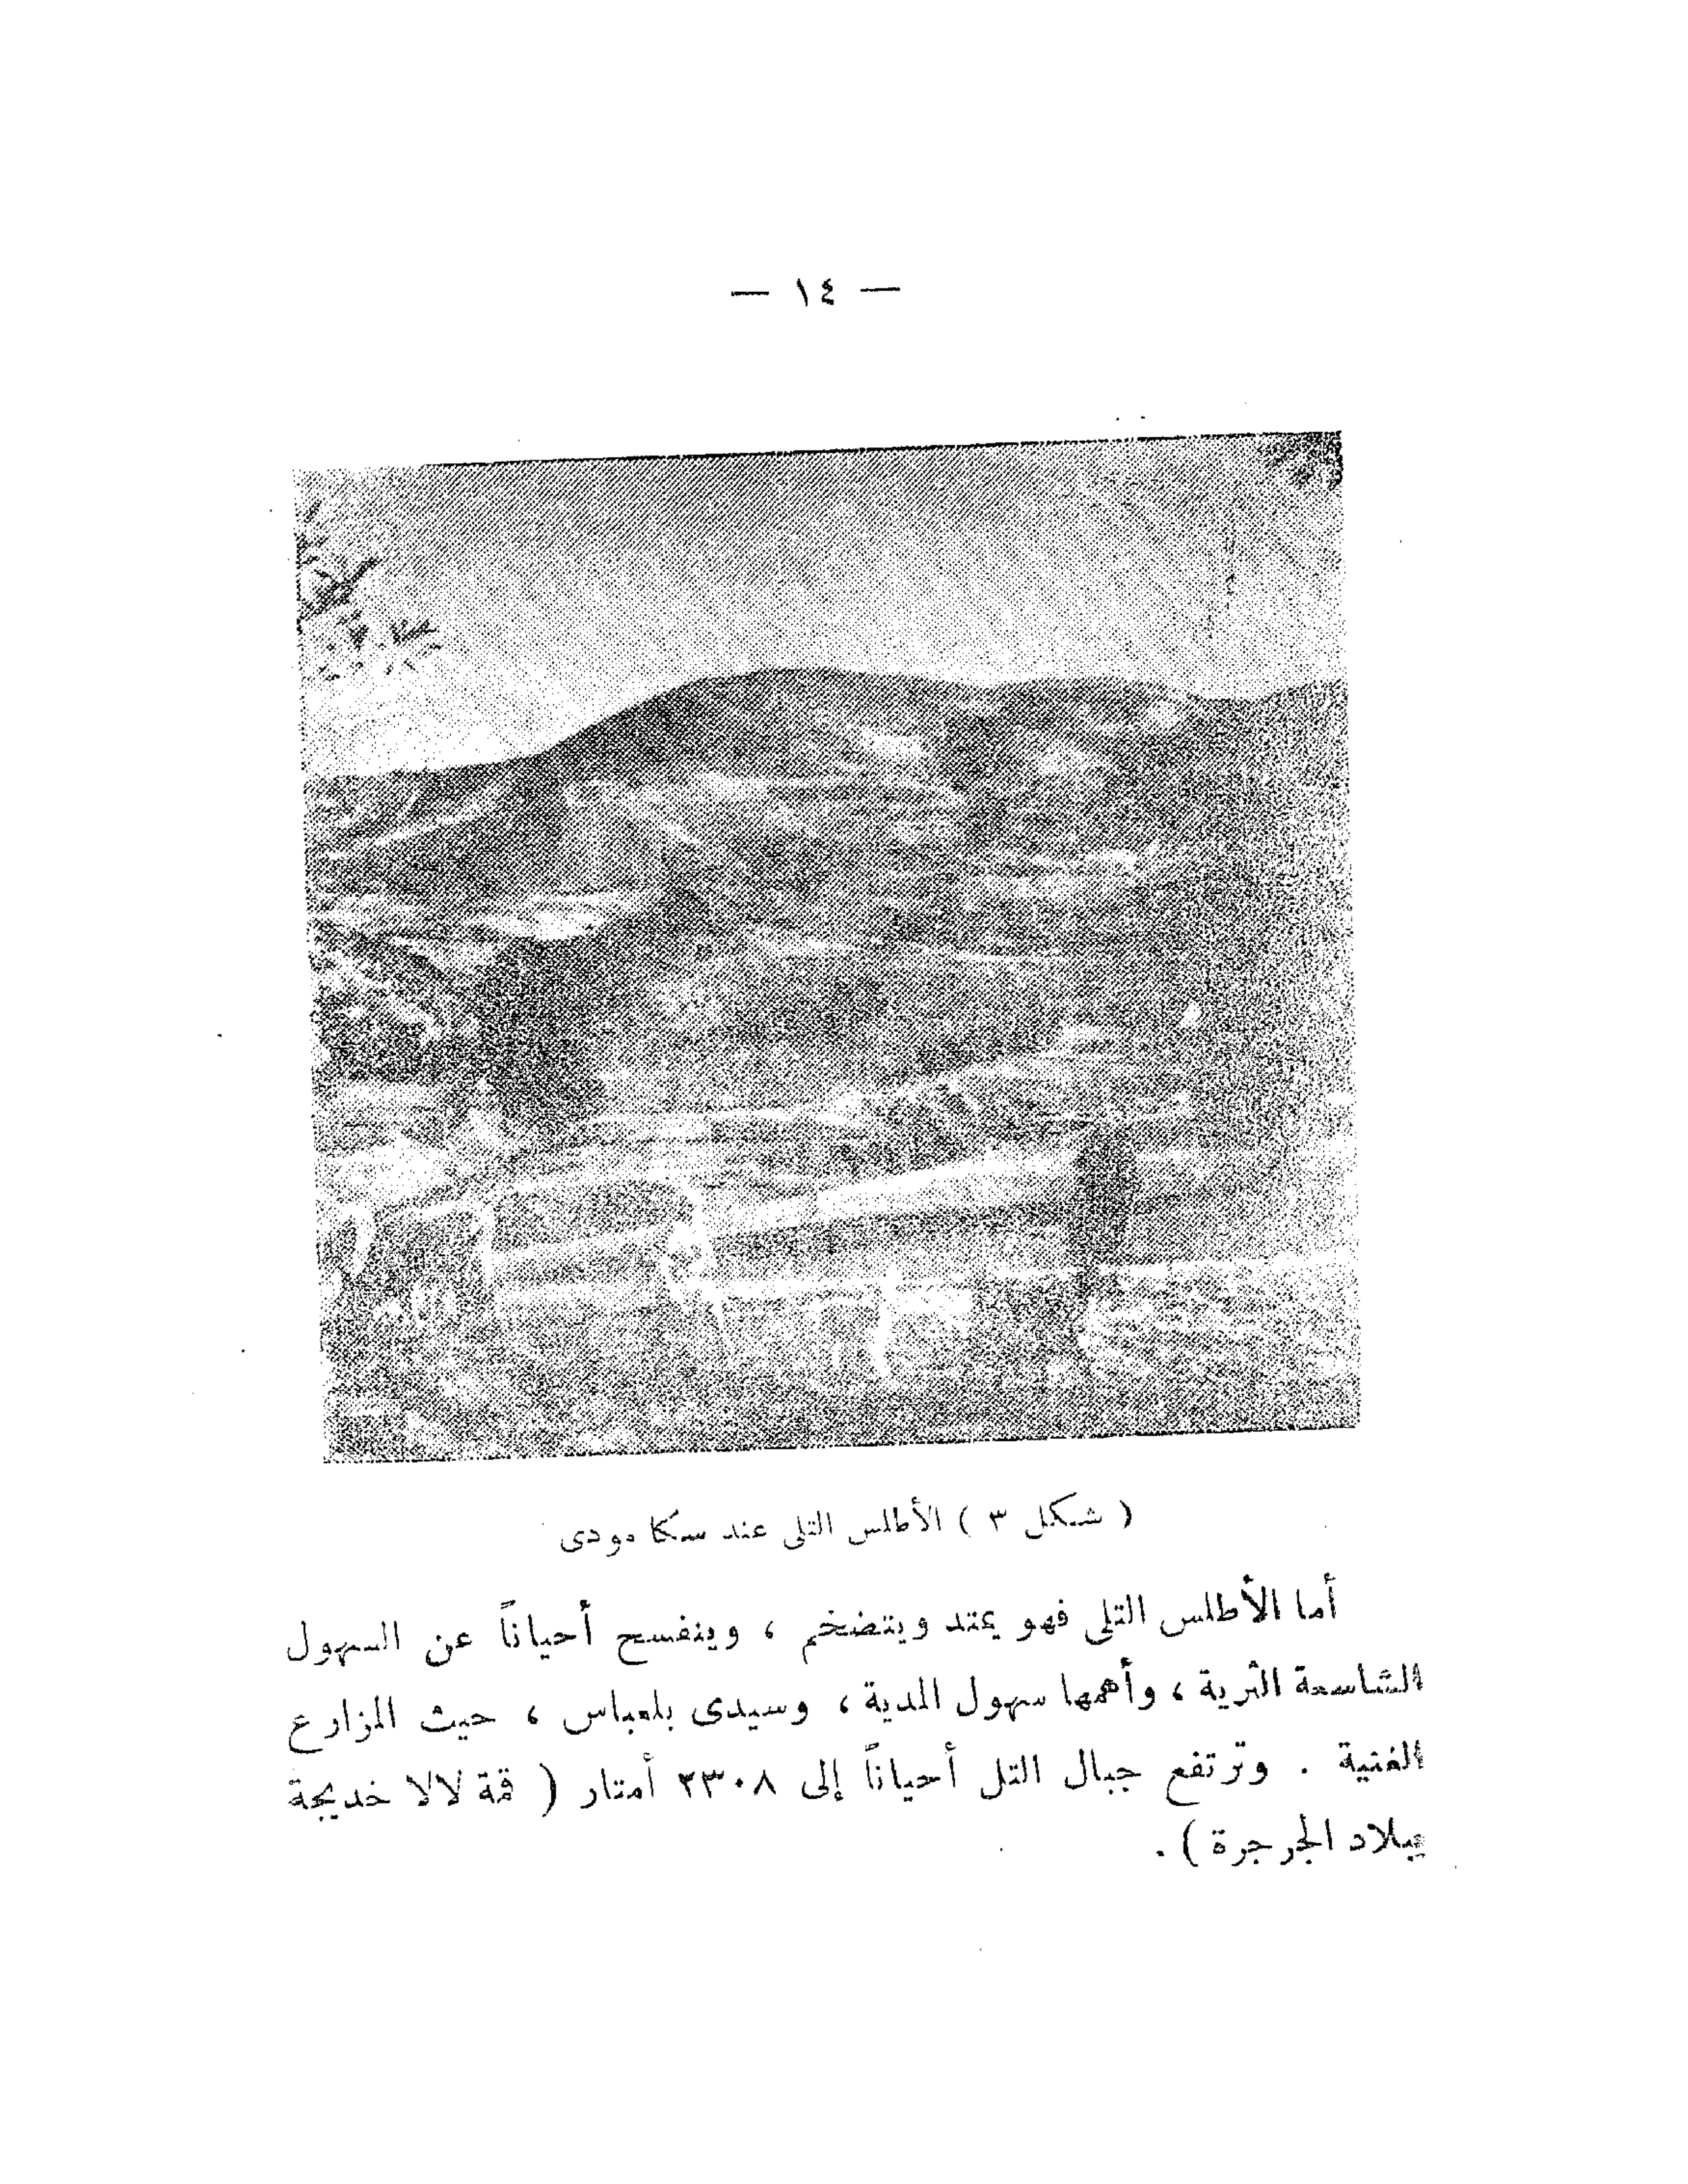 — ١٤ —
( شكل ٣ ) الأطلس التلى عند سكا مودى
أما الأطلس التلى فهو يمتد ويتضخم ، وينفسح أحياناً عن السهول
الشاسعة الثرية ، وأهمها سهول المدية ، وسيدى بلعباس ، حيث المزارع
الغنية . وترتفع جبال التل أحياناً إلى ٢٣٠٨ أمتار ( قمة لالا خديجة
ببلاد الجرجرة ) .